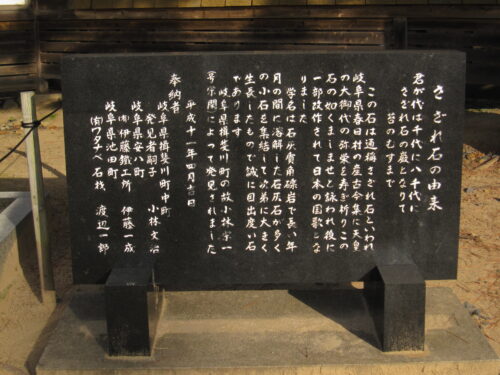 さざれ石の由来
君が代は千代に八千代に
さざれ石の巌となりて
苔のむすまで
この石は通称さざれ石といわれ
岐阜県春日村の産古今集に天皇
の大御代の弥栄を寿ぎ祈りこの
石の如くましませと詠われ後に
一部改作されて日本の国歌とな
りました
学名は石灰質角礫岩で長い年
月の間に溶解した石灰石が多く
の小石を集結して次第に大きく
生長したもので誠に目出度い石
であります
岐阜県揖斐川町の故小林宗一
号宗閑によって発見されました
平成十一年四月吉日
奉納者
岐阜県揖斐川町中町
発見者嗣子 小林文治
岐阜県安八町
㈲伊藤鐵工所 伊藤一成
岐阜県池田町
㈲ワタナベ石材 渡辺一郎